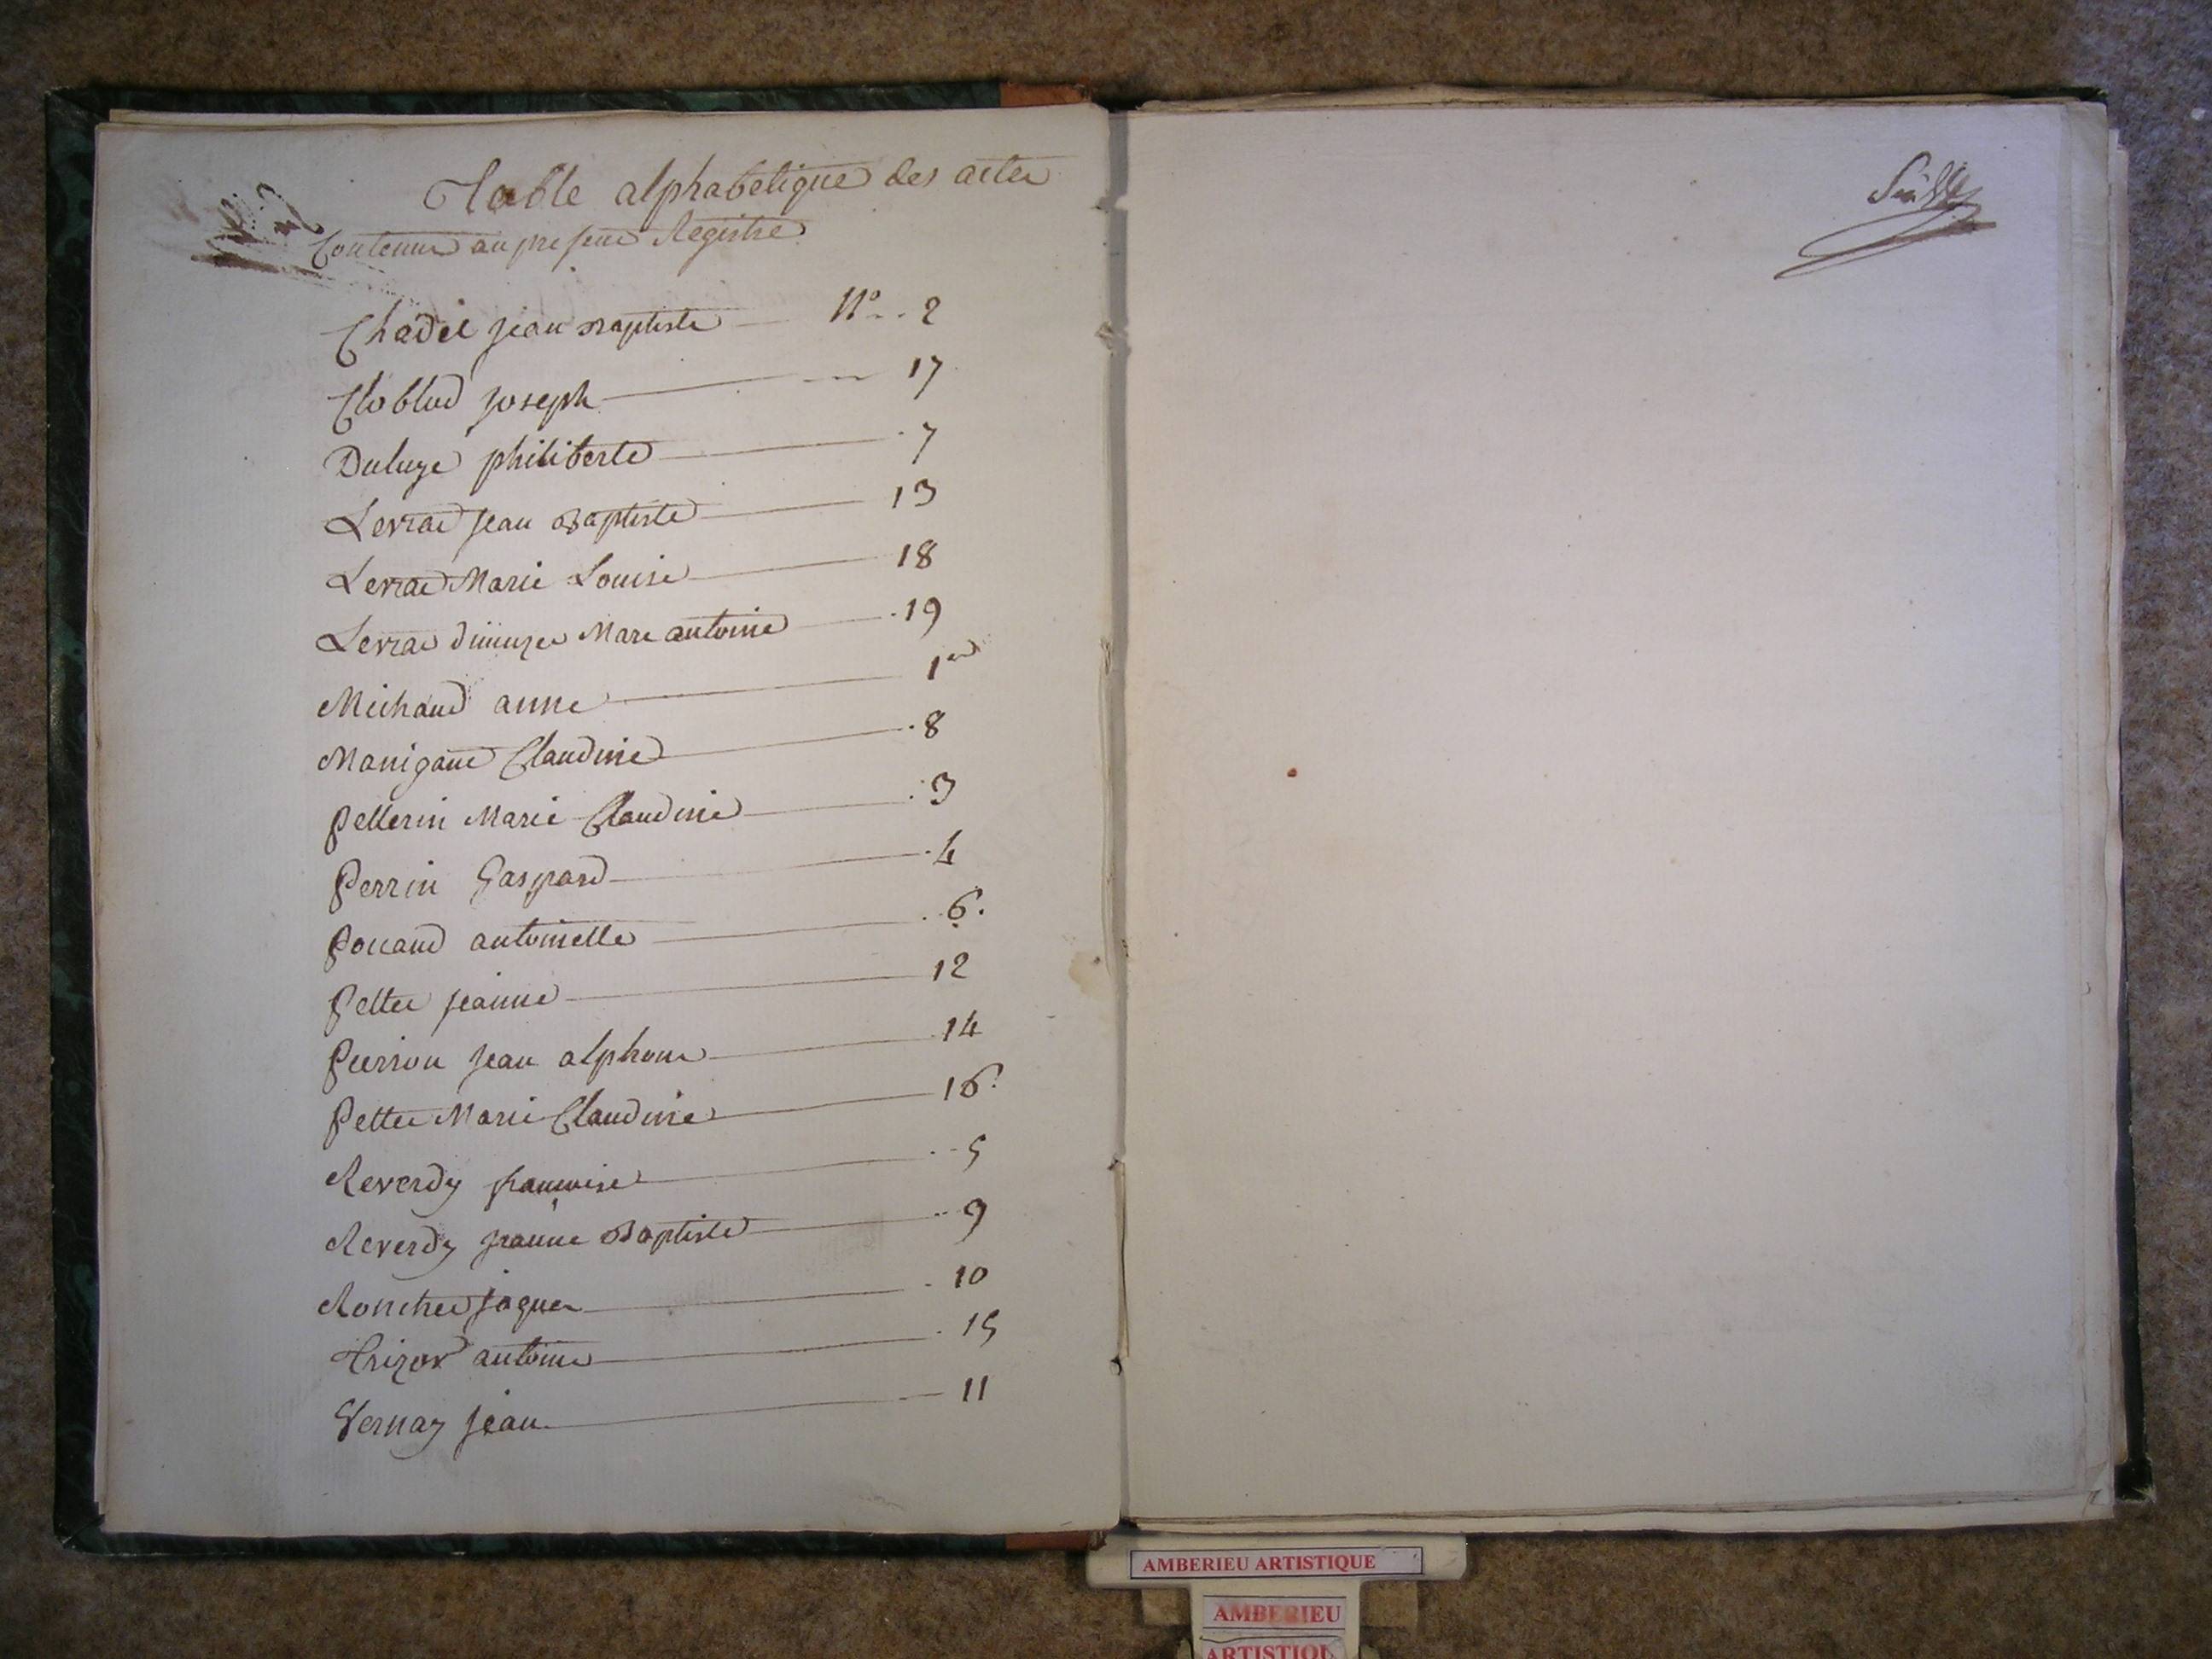 Table alphabetique des actes
Contenus au present Registre
Chadel jean Baptiste — N° .. 2
joseph — 17
Duluye philiberte — 7
Levrat jean Baptiste — 13
Levrat Marie Louise — 18
Levrat Marc antoine — 19
Michaud anne — 1er
Manigand Claudine — 8
Pellerin Marie Claudine — 3
Perrin Gaspard — 4
antoinette — 6.
Pettet jeanne — 12
jean alphonse — 14
Pettet Marie Claudine — 16.
Reverdy françoise — 5
Reverdy jeanne Baptiste — 9
Ronchet jaques — 10
antoine — 15
Vernay jean — 11
AMBERIEU ARTISTIQUE
AMBERIEU
ARTISTIQU